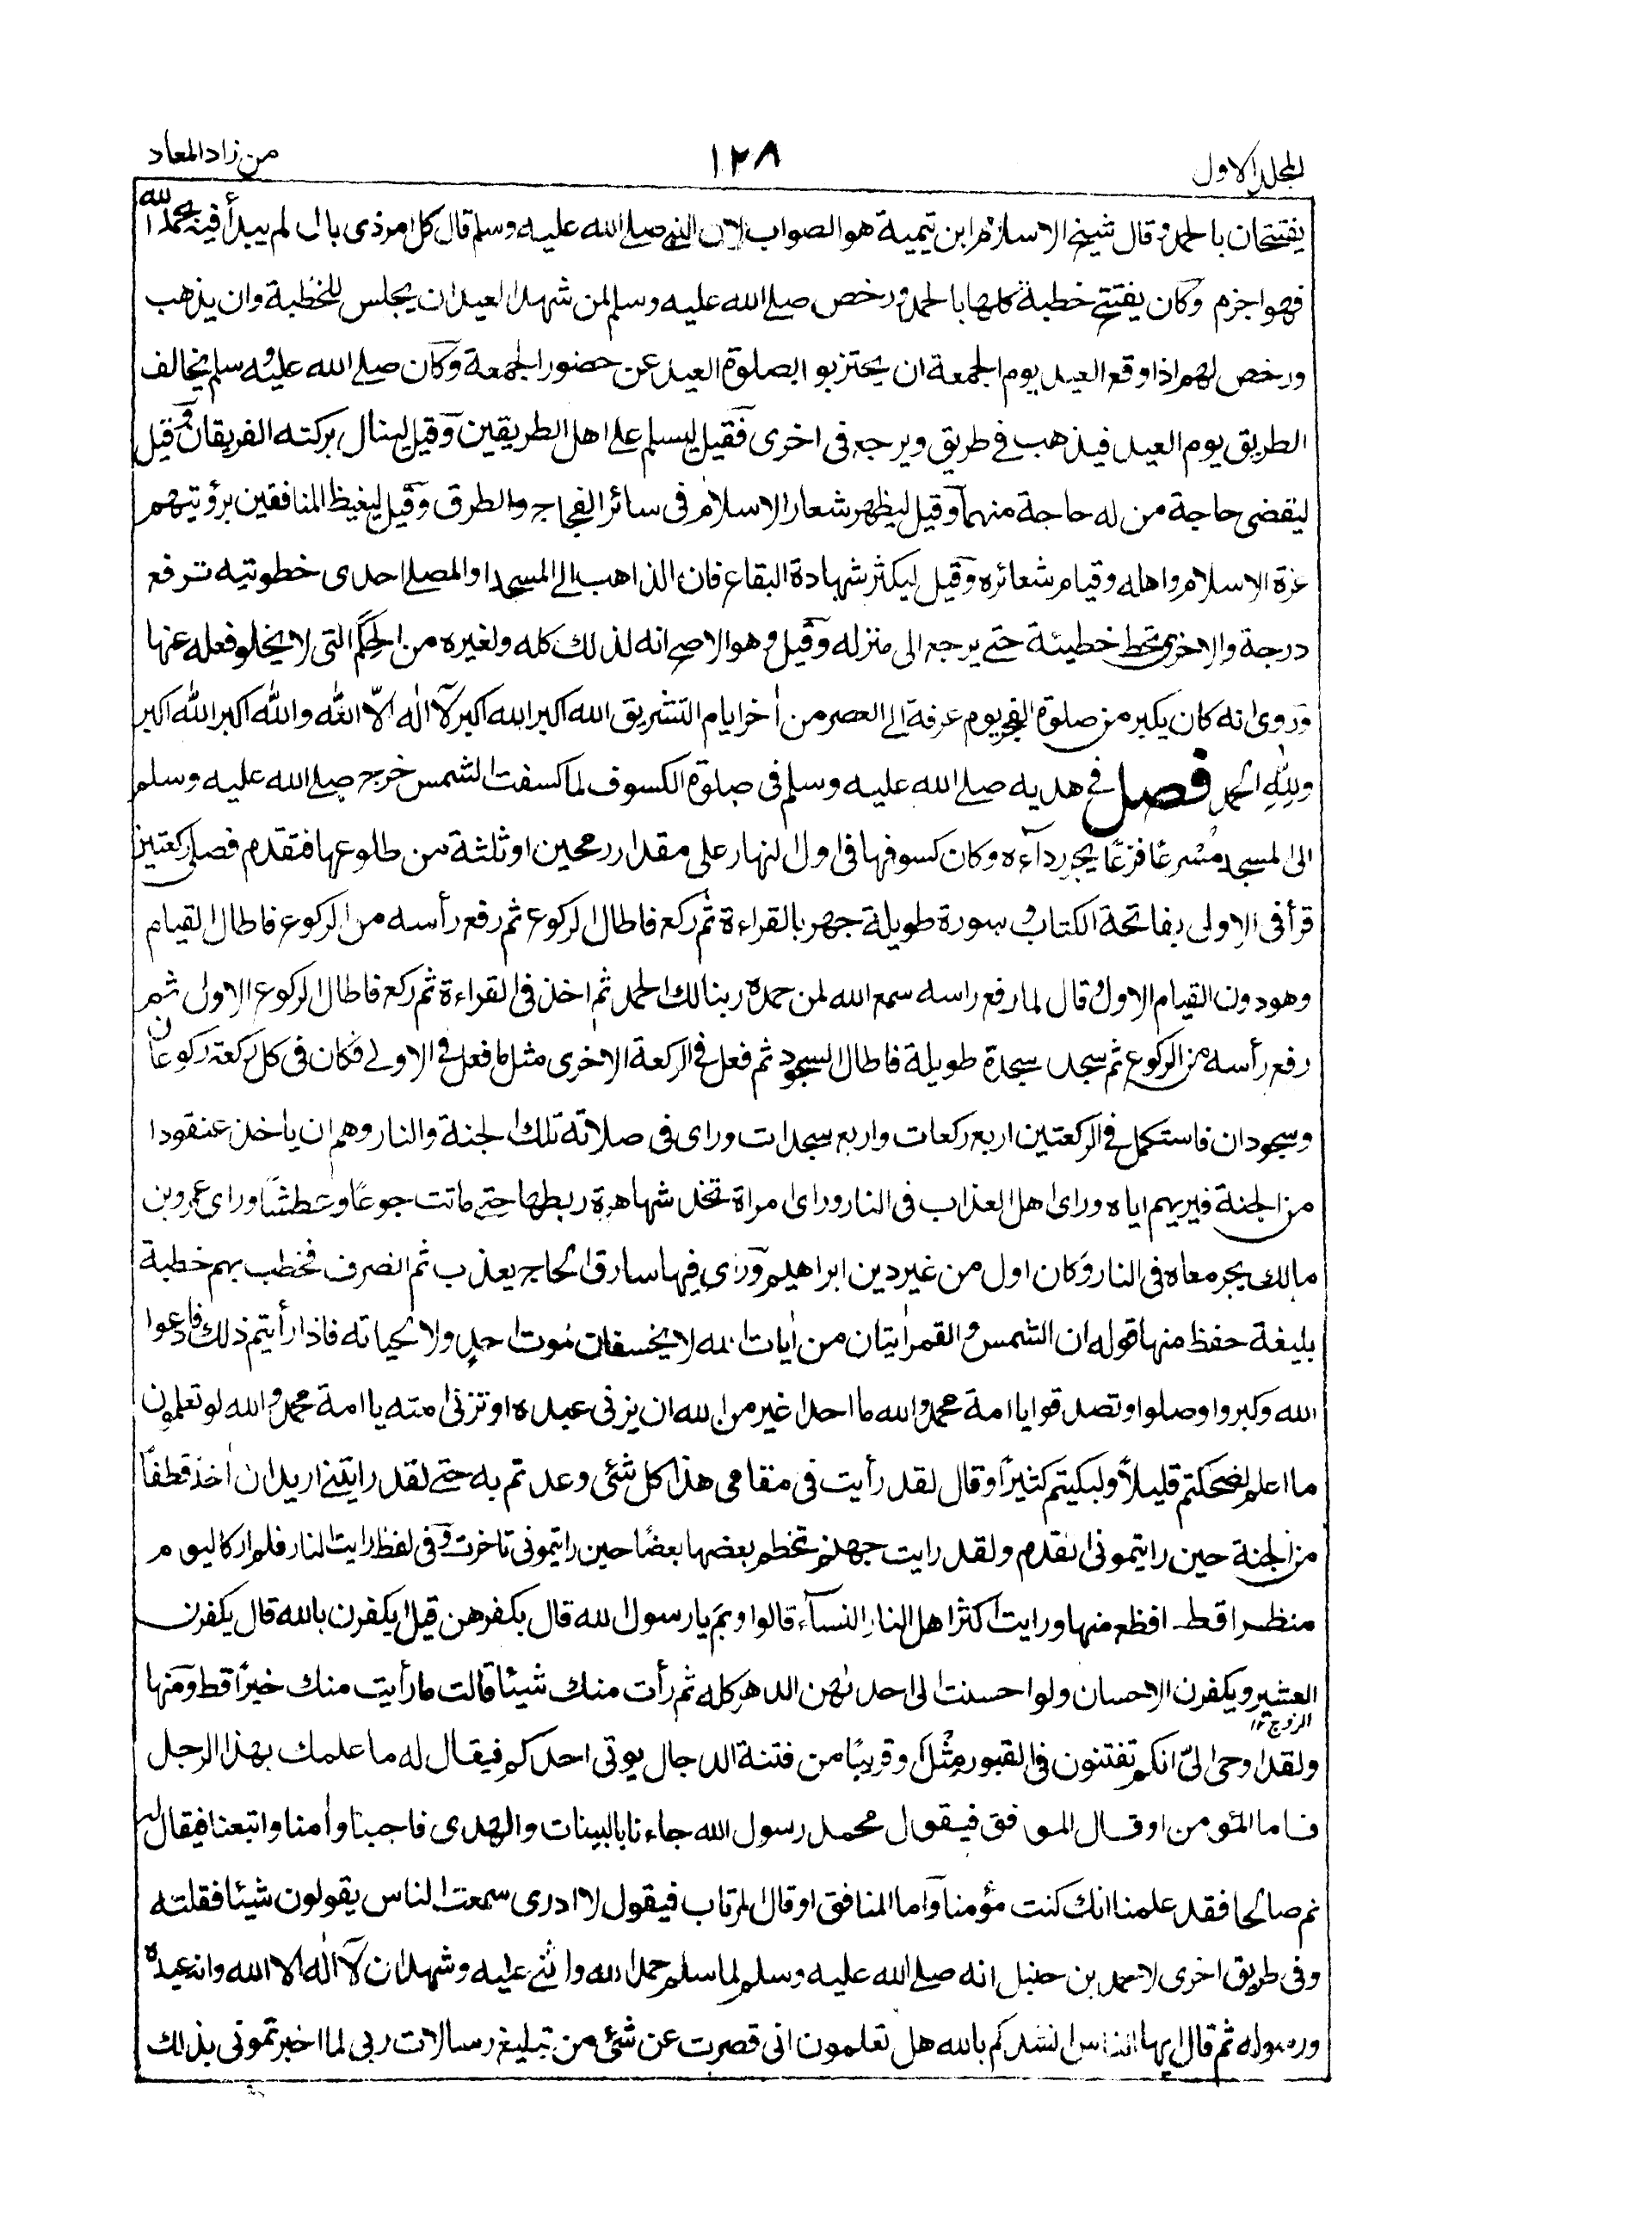 المجلد الاول
١٢٨
من زاد المعاد
يفتتحان بالحمد وقال شيخ الاسلام ابن تيمية هو الصواب لان النبي صلے الله عليه وسلم قال كل امر ذى بال لم يبدأ فيه بحمد الله
فهو اجزم وكان يفتتح خطبة كلها بالحمد ورخص صلے الله عليه وسلم لمن شهد العيد ان يجلس للخطبة وان يذهب
ورخص لهم اذا وقع العيد يوم الجمعة ان يجتزبوا بصلوة العيد عن حضور الجمعة وكان صلے الله عليه وسلم يخالف
الطريق يوم العيد فيذهب فے طريق ويرجع فى اخرى فقيل ليسلم على اهل الطريقين وقيل لينال بركته الفريقان وقيل
ليقضى حاجة من له حاجة منهما وقيل ليظهر شعار الاسلام فى سائر الفجاج والطرق وقيل ليغيظ المنافقين برؤيتهم
عزة الاسلام واهله وقيام شعائره وقيل ليكثر شهادة البقاع فان الذاهب الے المسجد او المصلے احدى خطوتيه ترفع
درجة والاخرى تحط خطيئة حتے يرجع الى منزله وقيل وهو الاصح انه لذلك كله ولغيره من الحِكَم التى لا يخلو فعله عنها
وروى انه كان يكبر من صلوة الفجر يوم عرفة الے العصر من اٰخر ايام التشريق الله اكبر الله اكبر لآ اله الّا الله والله اكبر الله اكبر
وللهِ الحمد فصل فے هديه صلے الله عليه وسلم فى صلوة الكسوف لما كسفت الشمس خرج صلے الله عليه وسلم
الى المسجد مُسْرعًا فزعًا يجر رداءه وكان كسوفها فى اول النهار على مقدار رمحين او ثلثة من طلوعها فتقدم فصلى ركعتين
قرأ فى الاولى بفاتحة الكتاب وسورة طويلة جهر بالقراءة ثم ركع فاطال الركوع ثم رفع رأسه من الركوع فاطال القيام
وهو دون القيام الاول وقال لما رفع راسه سمع الله لمن حمده ربنا لك الحمد ثم اخذ فى القراءة ثم ركع فاطال الركوع الاول ثم
رفع رأسه من الركوع ثم سجد سجدة طويلة فاطال السجود ثم فعل فے الركعة الاخرى مثل ما فعل فے الاولے فكان فى كل ركعة ركوعان
وسجودان فاستكمل فے الركعتين اربع ركعات واربع سجدات وراى فى صلاته تلك الجنة والنار وهم ان ياخذ عنقودا
من الجنة فيريهم اياه وراى اهل العذاب فى النار وراى امراة تخدشها هرة ربطتها حتے ماتت جوعًا وعطشًا وراى عمرو بن
مالك يجر معاه فى النار وكان اول من غير دين ابراهيم وراى فيها سارق الحاج يعذب ثم انصرف فخطب بهم خطبة
بليغة حفظ منها قوله ان الشمس والقمر اٰيتان من اٰيات الله لا يخسفان لموت احدٍ ولا لحياته فاذا رأيتم ذلك فادعوا
الله وكبروا وصلوا وتصدقوا يا امة محمد والله ما احد اغير من الله ان يزنى عبده او تزنى امته يا امة محمد والله لو تعلمون
ما اعلم لضحكتم قليلاً ولبكيتم كثيرًا وقال لقد رأيت فى مقامى هذا كل شئى وعدتم به حتے لقد رايتنے اريد ان اٰخذ قطفًا
من الجنة حين رايتمونى اتقدم ولقد رايت جهنم تحطم بعضها بعضًا حين رايتمونى تاخرت وفى لفظ رايت النار فلم ار كاليوم
منظرا قط افظع منها ورايت اكثر اهل النار النسآء قالوا وبم يا رسول الله قال بكفرهن قيل ايكفرن بالله قال يكفرن
العشير ويكفرن الاحسان ولو احسنت الى احدٰهن الدهر كله ثم رأت منك شيئا قالت ما رأيت منك خيرًا قط ومنها
الزوج ١٢
ولقد اوحى الىّ انكم تفتنون فى القبور مِثْلَ او قريبًا من فتنة الدجال يوتى احدكم فيقال له ما علمك بهذا الرجل
فاما المؤمن او قال الموفق فيقول محمد رسول الله جاءنا بالبينات والهدى فاجبنا واٰمنا واتبعنا فيقال له
نم صالحا فقد علمنا انك كنت مؤمنا واما المنافق او قال المرتاب فيقول لا ادرى سمعت الناس يقولون شيئا فقلته
وفى طريق اخرى لاحمد بن حنبل انه صلے الله عليه وسلم لما سلم حمد الله واثنے عليه وشهد ان لآ اله الا الله وانه عبده
ورسوله ثم قال ايها الناس انشدكم بالله هل تعلمون انى قصرت عن شئى من تبليغ رسالات ربى لما اخبرتمونى بذلك